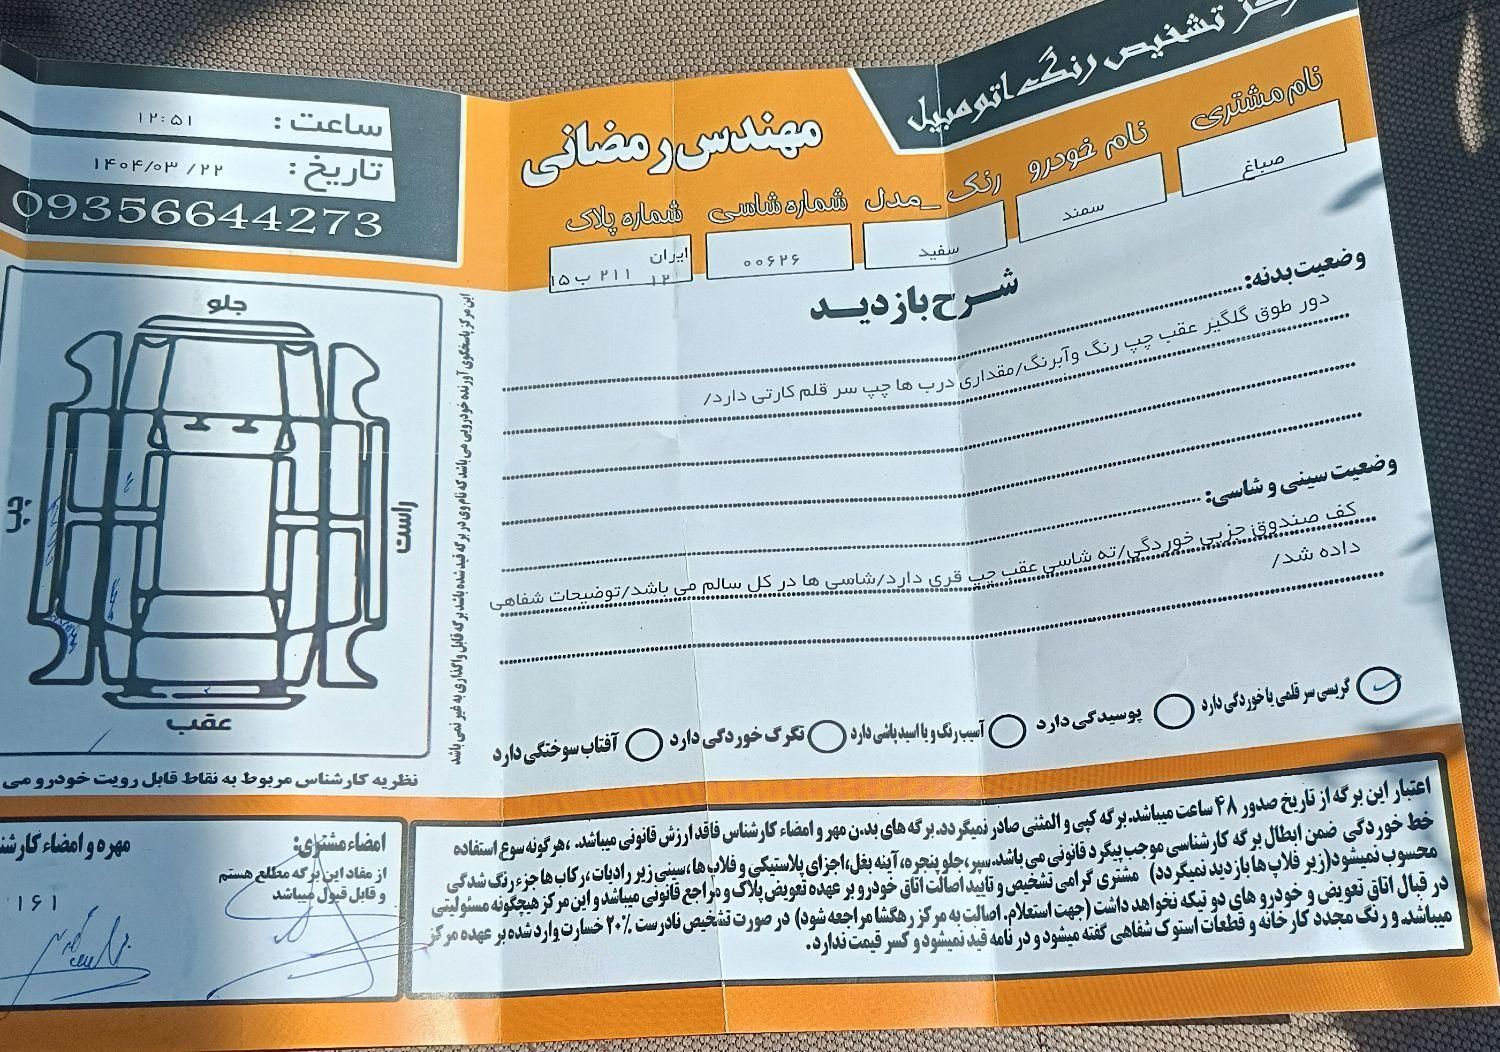 تشخیص رنگ اتومبیل
مهندس رمضانی
ساعت: ۱۲:۵۱
تاریخ: ۱۴۰۴/۰۳/۲۲
09356644273
نام مشتری
صباغ
نام خودرو
سمند
رنگ _ مدل
سفید
شماره شاسی
۰۰۶۲۶
شماره پلاک
ایران
۱۲ ۲۱۱ ب ۱۵
شرح بازدید
وضعیت بدنه:
دور طوق گلگیر عقب چپ رنگ وآبرنگ/مقداری درب ها چپ سر قلم کارتی دارد/
وضعیت سینی و شاسی:
کف صندوق جزیی خوردگی/ته شاسی عقب چپ قری دارد/شاسی ها در کل سالم می باشد/توضیحات شفاهی
داده شد/
گریسی سر قلمی یا خوردگی دارد
پوسیدگی دارد
آسیب رنگ و یا اسیدپاشی دارد
تگرگ خوردگی دارد
آفتاب سوختگی دارد
جلو
چپ
راست
عقب
این مرکز پاسخگوی آورنده خودرویی می باشد که نام وی در برگه قید شده باشد برگه قابل واگذاری به غیر نمی باشد
نظریه کارشناس مربوط به نقاط قابل رویت خودرو می
اعتبار این برگه از تاریخ صدور ۴۸ ساعت میباشد.برگه کپی و المثنی صادر نمیگردد.برگه های بدن مهر و امضاء کارشناس فاقد ارزش قانونی میباشد. ،هرگونه سوع استفاده
خط خوردگی ضمن ابطال برگه کارشناسی موجب پیگرد قانونی می باشد.سپر،جلو پنجره،آینه بغل،اجزای پلاستیکی و فلاپ ها،سینی زیر رادیات،رکاب ها جزء رنگ شدگی
محسوب نمیشود(زیر فلاپ ها بازدید نمیگردد) مشتری گرامی تشخیص و تایید اصالت اتاق خودرو بر عهده تعویض پلاک و مراجع قانونی میباشد و این مرکز هیچگونه مسئولیتی
در قبال اتاق تعویض و خودرو های دو تیکه نخواهد داشت (جهت استعلام. اصالت به مرکز رهگشا مراجعه شود) در صورت تشخیص نادرست ۲۰٪ خسارت وارد شده بر عهده مرکز
میباشد. و رنگ مجدد کارخانه و قطعات استوک شفاهی گفته میشود و در نامه قید نمیشود و کسر قیمت ندارد.
امضاء مشتری:
از مفاد این برگه مطلع هستم
و قابل قبول میباشد
مهره و امضاء کارشنا
۱۶۱